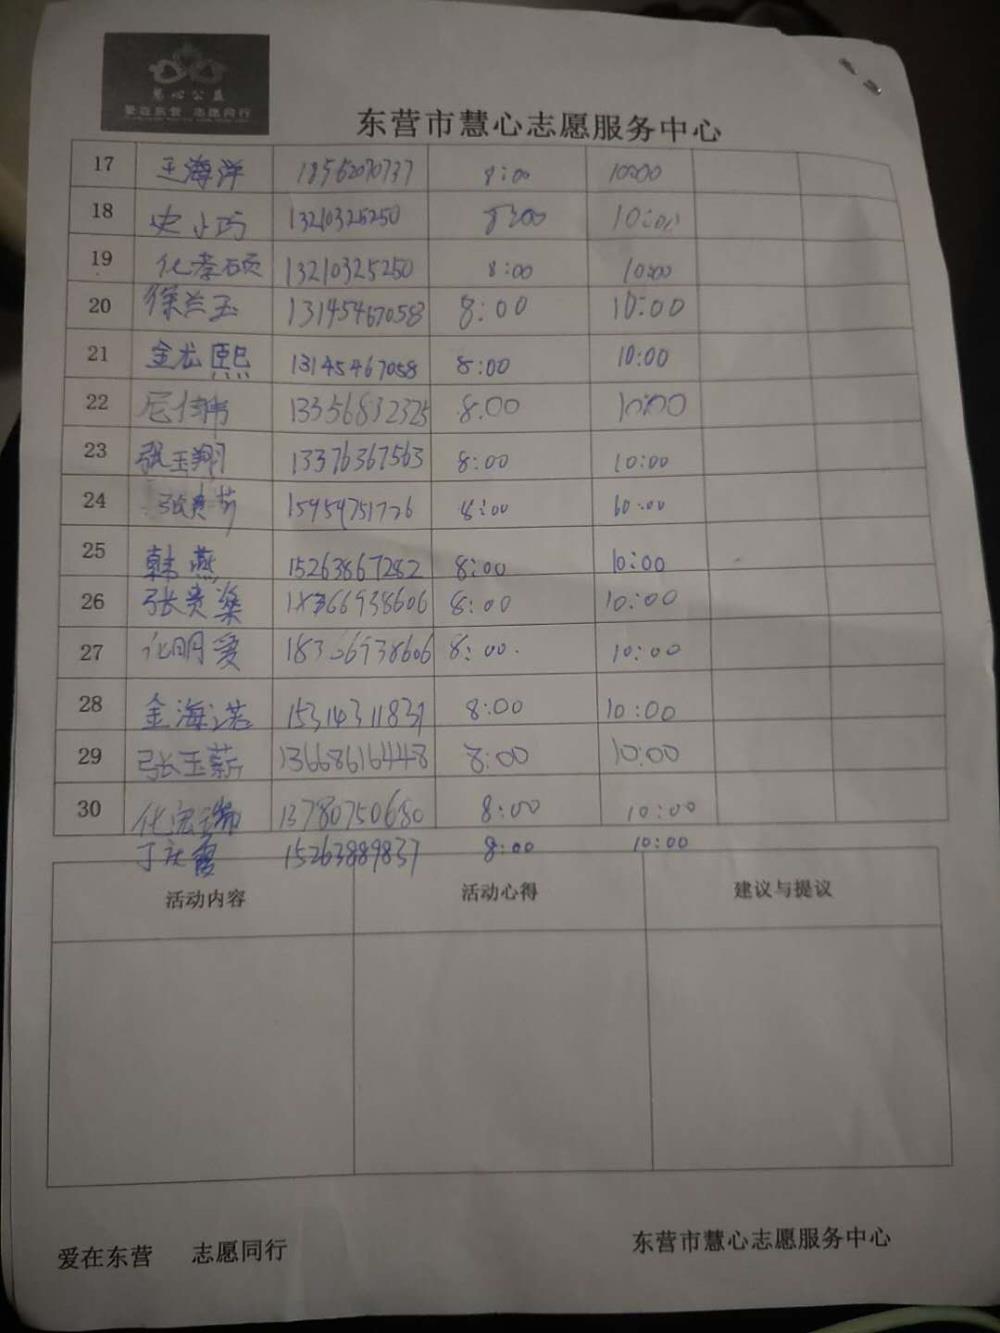 慧心公益
爱在东营 志愿同行
东营市慧心志愿服务中心
17 王海洋 18562070737 8:00 10:00
18 史小巧 13210325250 8:00 10:00
19 化孝硕 13210325250 8:00 10:00
20 徐兰玉 13145467058 8:00 10:00
21 金尤熙 13145467058 8:00 10:00
22 尼佳玮 13356832325 8:00 10:00
23 张玉翔 13376367563 8:00 10:00
24 张贵芳 15959751726 8:00 10:00
25 韩燕 15263867282 8:00 10:00
26 张贵燊 18366938606 8:00 10:00
27 化明爱 18366938606 8:00 10:00
28 金海诺 15314311831 8:00 10:00
29 张玉薪 13668616448 8:00 10:00
30 化宏瑞 13780750680 8:00 10:00
丁 霞 15263889837 8:00 10:00
活动内容 活动心得 建议与提议
爱在东营 志愿同行 东营市慧心志愿服务中心